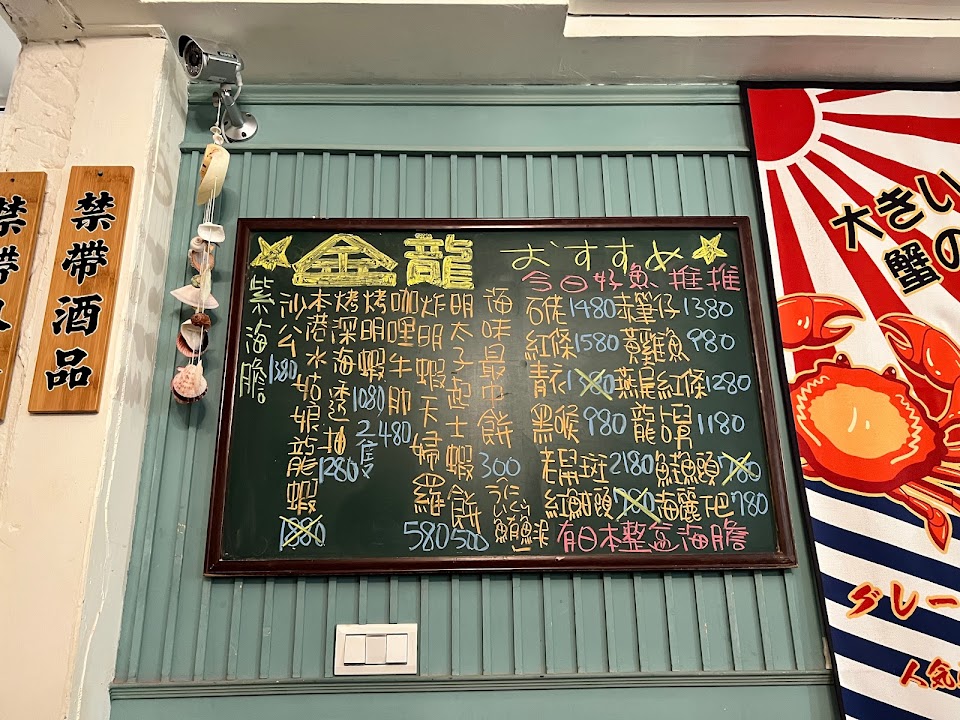 禁帶酒品
金龍
おすすめ
今日好魚推推
紫海膽 1380
沙公
本港水姑娘龍蝦
烤深海透抽 1280
烤明蝦 1080 2隻
咖哩牛肋 480
炸明蝦天婦羅 580
明太子起士蝦餅 500
海味最中餅 300
うに
いくら
鮪魚泥
石隹 1480
紅條 1580
青衣 1380
黑喉 980
老鼠斑 2180
紅魽頭
赤筆仔 1380
黃雞魚 980
燕尾紅條 1280
龍占 1180
魚頭 780
海麗下巴 780
有日本整盒海膽
大きい
蟹の
グレー
人気